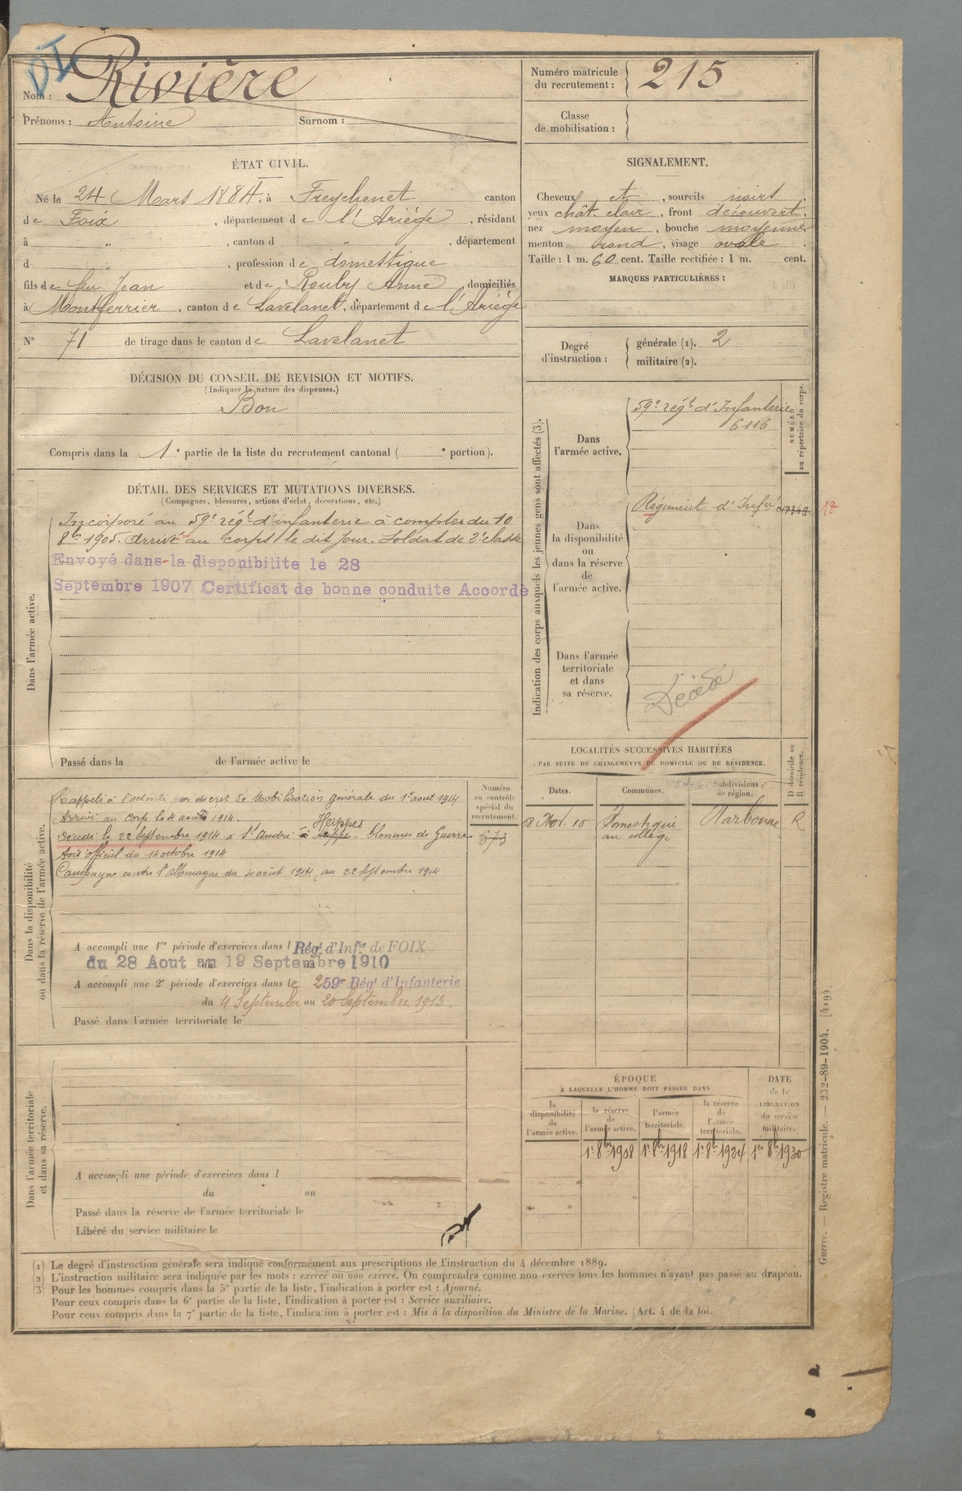 DI
Nom : Rivière
Prénoms : Antoine Surnom :
Numéro matricule du recrutement : 215
Classe de mobilisation :
ÉTAT CIVIL.
Né le 24 Mars 1884 à Freychenet canton
de Foix, département de l'Ariège, résidant
à " , canton d " , département
d " , profession de domestique
fils de feu Jean et de Rouby Anne, domiciliés
à Montferrier, canton de Lavelanet, département de l'Ariège
N° 71 de tirage dans le canton de Lavelanet
SIGNALEMENT.
Cheveux et, sourcils noirs
yeux chât. clair, front découvert,
nez moyen, bouche moyenne
menton rond, visage ovale.
Taille : 1 m. 60 cent. Taille rectifiée : 1 m. cent.
MARQUES PARTICULIÈRES :
Degré d'instruction : générale (1). 2
militaire (2).
DÉCISION DU CONSEIL DE REVISION ET MOTIFS.
(Indiquer la nature des dispenses.)
Bon
Compris dans la 1e partie de la liste du recrutement cantonal ( e portion).
DÉTAIL DES SERVICES ET MUTATIONS DIVERSES.
(Campagnes, blessures, actions d'éclat, décorations, etc.)
Dans l'armée active.
Incorporé au 59e régt d'infanterie à compter du 10
8bre 1905. Arrivé au corps le dit jour. Soldat de 2e classe
Envoyé dans la disponibilite le 28
Septembre 1907 Certificat de bonne conduite Accordé
Passé dans la de l'armée active le
Indication des corps auxquels les jeunes gens sont affectés (3).
Dans l'armée active.
59e régt d'Infanterie
6116
NUMÉRO au répertoire du corps.
Dans la disponibilité ou dans la réserve de l'armée active.
Régiment d'Infie
Dans l'armée territoriale et dans sa réserve.
Décédé
LOCALITÉS SUCCESSIVES HABITÉES
PAR SUITE DE CHANGEMENTS DE DOMICILE OU DE RÉSIDENCE.
Dates. Communes. Subdivisions de région. D domicile ou R résidence.
Nov. 10 au collège Narbonne R
Dans la disponibilité ou dans la réserve de l'armée active.
Numéro au contrôle spécial du recrutement.
673
Rappelé à l'activité par décret de Mobilisation générale du 1er aout 1914
Arrivé au Corps le 4 août 1914.
Décédé le 22 septembre 1914 à St André à Heippes blessures de Guerre
Avis officiel du 14 octobre 1914
Campagne contre l'Allemagne du 4 août 1914 au 22 septembre 1914
A accompli une 1re période d'exercices dans l Régt d'Infie de FOIX
du 28 Aout au 19 Septembre 1910
A accompli une 2e période d'exercices dans le 259e Régt d'Infanterie
du 4 Septembre au 20 Septembre 1913.
Passé dans l'armée territoriale le
Dans l'armée territoriale et dans sa réserve.
A accompli une période d'exercices dans l
du au
Passé dans la réserve de l'armée territoriale le
Libéré du service militaire le
ÉPOQUE
À LAQUELLE L'HOMME DOIT PASSER DANS
DATE de la LIBÉRATION du service militaire.
la disponibilité de l'armée active. la réserve de l'armée active. l'armée territoriale. la réserve de l'armée territoriale.
1er 8bre 1908 1er 8bre 1918 1er 8bre 1924 1er 8bre 1930
(1) Le degré d'instruction générale sera indiqué conformément aux prescriptions de l'instruction du 4 décembre 1889.
(2) L'instruction militaire sera indiquée par les mots : exercé ou non exercé. On comprendra comme non exercés tous les hommes n'ayant pas passé au drapeau.
(3) Pour les hommes compris dans la 5e partie de la liste, l'indication à porter est : Ajourné.
Pour ceux compris dans la 6e partie de la liste, l'indication à porter est : Service auxiliaire.
Pour ceux compris dans la 7e partie de la liste, l'indication à porter est : Mis à la disposition du Ministre de la Marine. (Art. 4 de la loi.
Guerre. — Registre matricule. — 232-89-1904. [419]